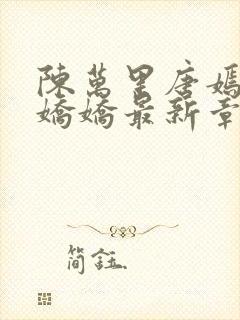 陳萬里唐嫣
嬌嬌最新章
簡註.